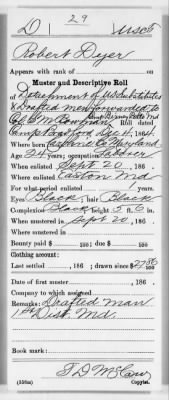 D | 29 | USCT
Robert Dyer
Appears with rank of on
Muster and Descriptive Roll
of Detachment of US Substitutes
& Drafted men forwarded to
Camp Roll dated
Camp Dec 4, 1864.
Where born Maryland
Age 24 years; occupation
When enlisted Sept 20, 186 .
Where enlisted Easton Md
For what period enlisted 1 years.
Eyes Black, hair Black
Complexion Black height 5 ft. 6 in.
When mustered in Sept 20, 186 .
Where mustered in
Bounty paid $ 100; due $ 100
Clothing account:
Last settled , 186 ; drawn since $ 100
Date of first muster , 186 .
Company to which assigned
Remarks: Drafted man
1st Dist. Md.
Book mark:
Copyist.